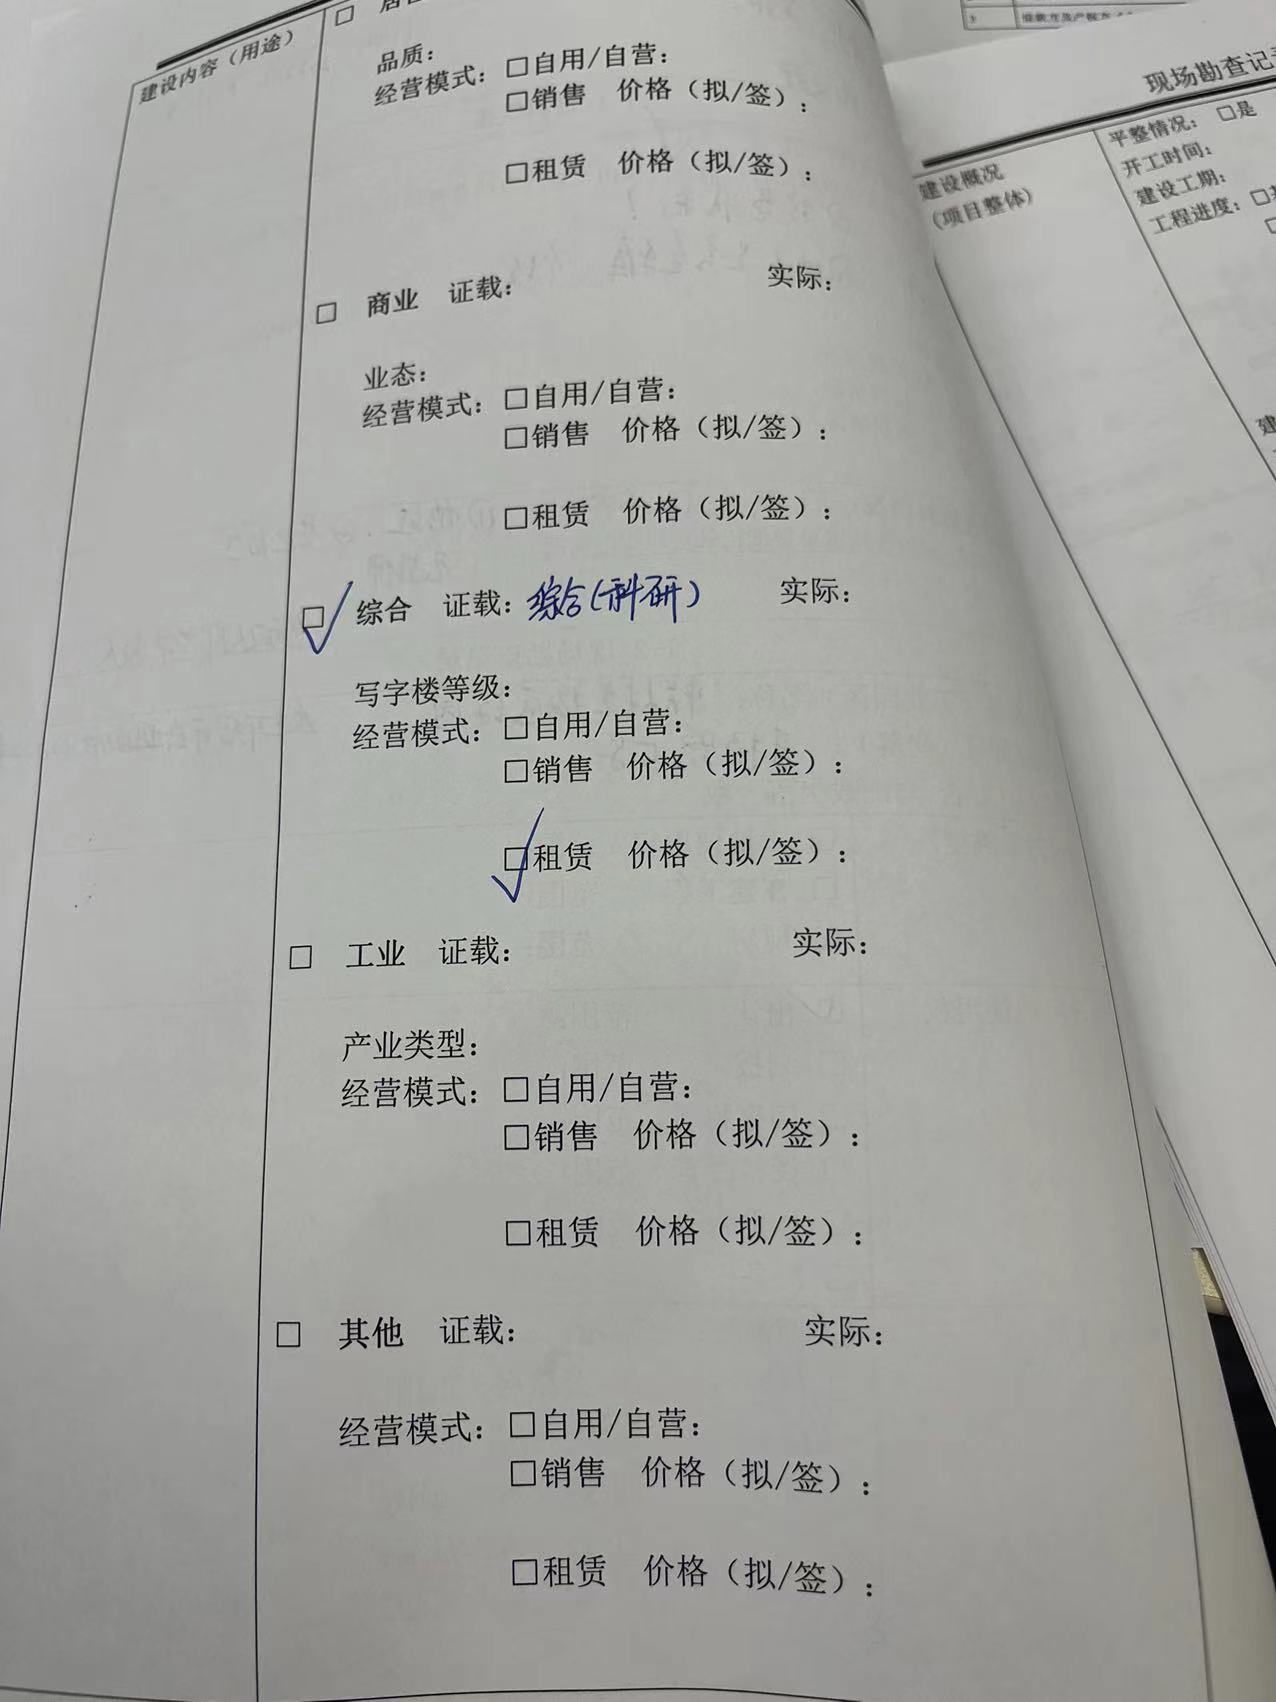 建设内容（用途）
□
品质：
经营模式：□自用/自营：
□销售 价格（拟/签）：
□租赁 价格（拟/签）：
□ 商业 证载： 实际：
业态：
经营模式：□自用/自营：
□销售 价格（拟/签）：
□租赁 价格（拟/签）：
☑ 综合 证载：综合(科研) 实际：
写字楼等级：
经营模式：□自用/自营：
□销售 价格（拟/签）：
☑租赁 价格（拟/签）：
□ 工业 证载： 实际：
产业类型：
经营模式：□自用/自营：
□销售 价格（拟/签）：
□租赁 价格（拟/签）：
□ 其他 证载： 实际：
经营模式：□自用/自营：
□销售 价格（拟/签）：
□租赁 价格（拟/签）：
3
现场勘查记
建设概况
（项目整体）
平整情况：□是
开工时间：
建设工期：
工程进度：□
建